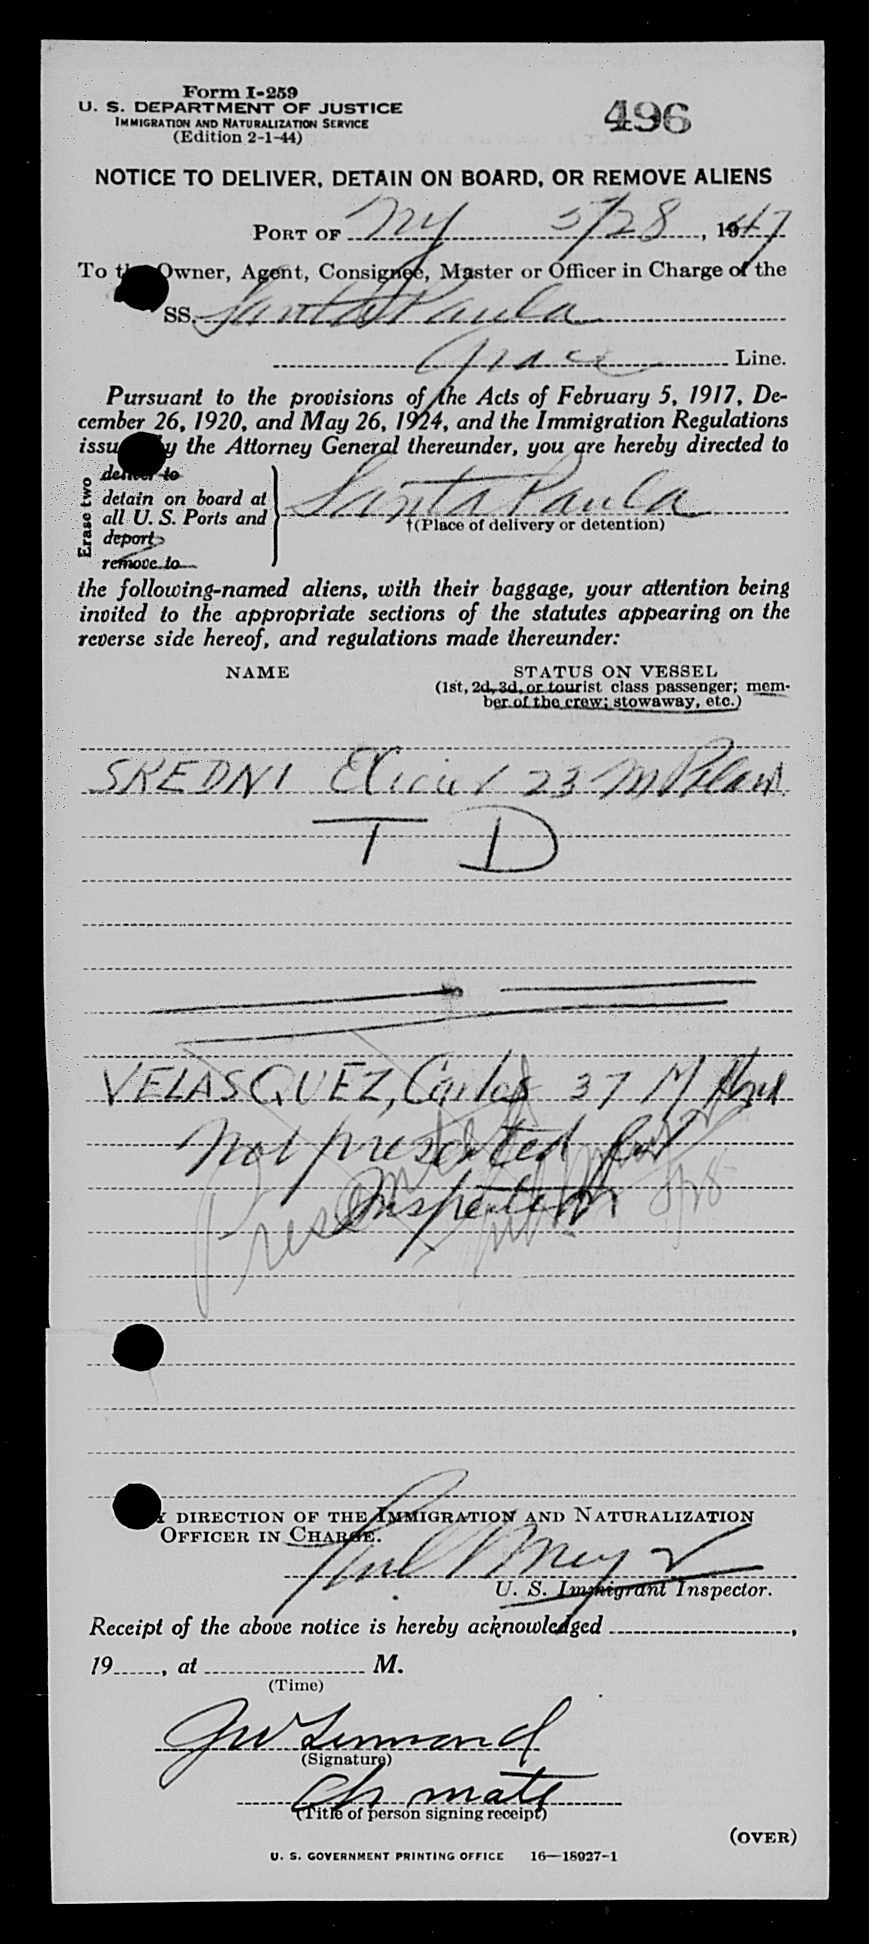 Form I-259
U. S. DEPARTMENT OF JUSTICE
IMMIGRATION AND NATURALIZATION SERVICE
(Edition 2-1-44)
496
NOTICE TO DELIVER, DETAIN ON BOARD, OR REMOVE ALIENS
PORT OF NY 5/28, 1947
To the Owner, Agent, Consignee, Master or Officer in Charge of the
SS. Santa Paula
Grace Line.
Pursuant to the provisions of the Acts of February 5, 1917, De-
cember 26, 1920, and May 26, 1924, and the Immigration Regulations
issued by the Attorney General thereunder, you are hereby directed to
Erase two
deliver to
detain on board at
all U. S. Ports and
deport
remove to
Santa Paula
†(Place of delivery or detention)
the following-named aliens, with their baggage, your attention being
invited to the appropriate sections of the statutes appearing on the
reverse side hereof, and regulations made thereunder:
NAME STATUS ON VESSEL
(1st, 2d, 3d, or tourist class passenger; mem-
ber of the crew; stowaway, etc.)
SKEDNI 23 M
T D
VELASQUEZ, Carlos 37 M
Not presented for
Inspection
Presented
5/28
BY DIRECTION OF THE IMMIGRATION AND NATURALIZATION
OFFICER IN CHARGE.
U. S. Immigrant Inspector.
Receipt of the above notice is hereby acknowledged ,
19 , at M.
(Time)
(Signature)
Ch mate
(Title of person signing receipt)
(OVER)
U. S. GOVERNMENT PRINTING OFFICE 16—18927-1